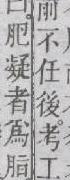 前不任後考工
曰肥凝者爲脂